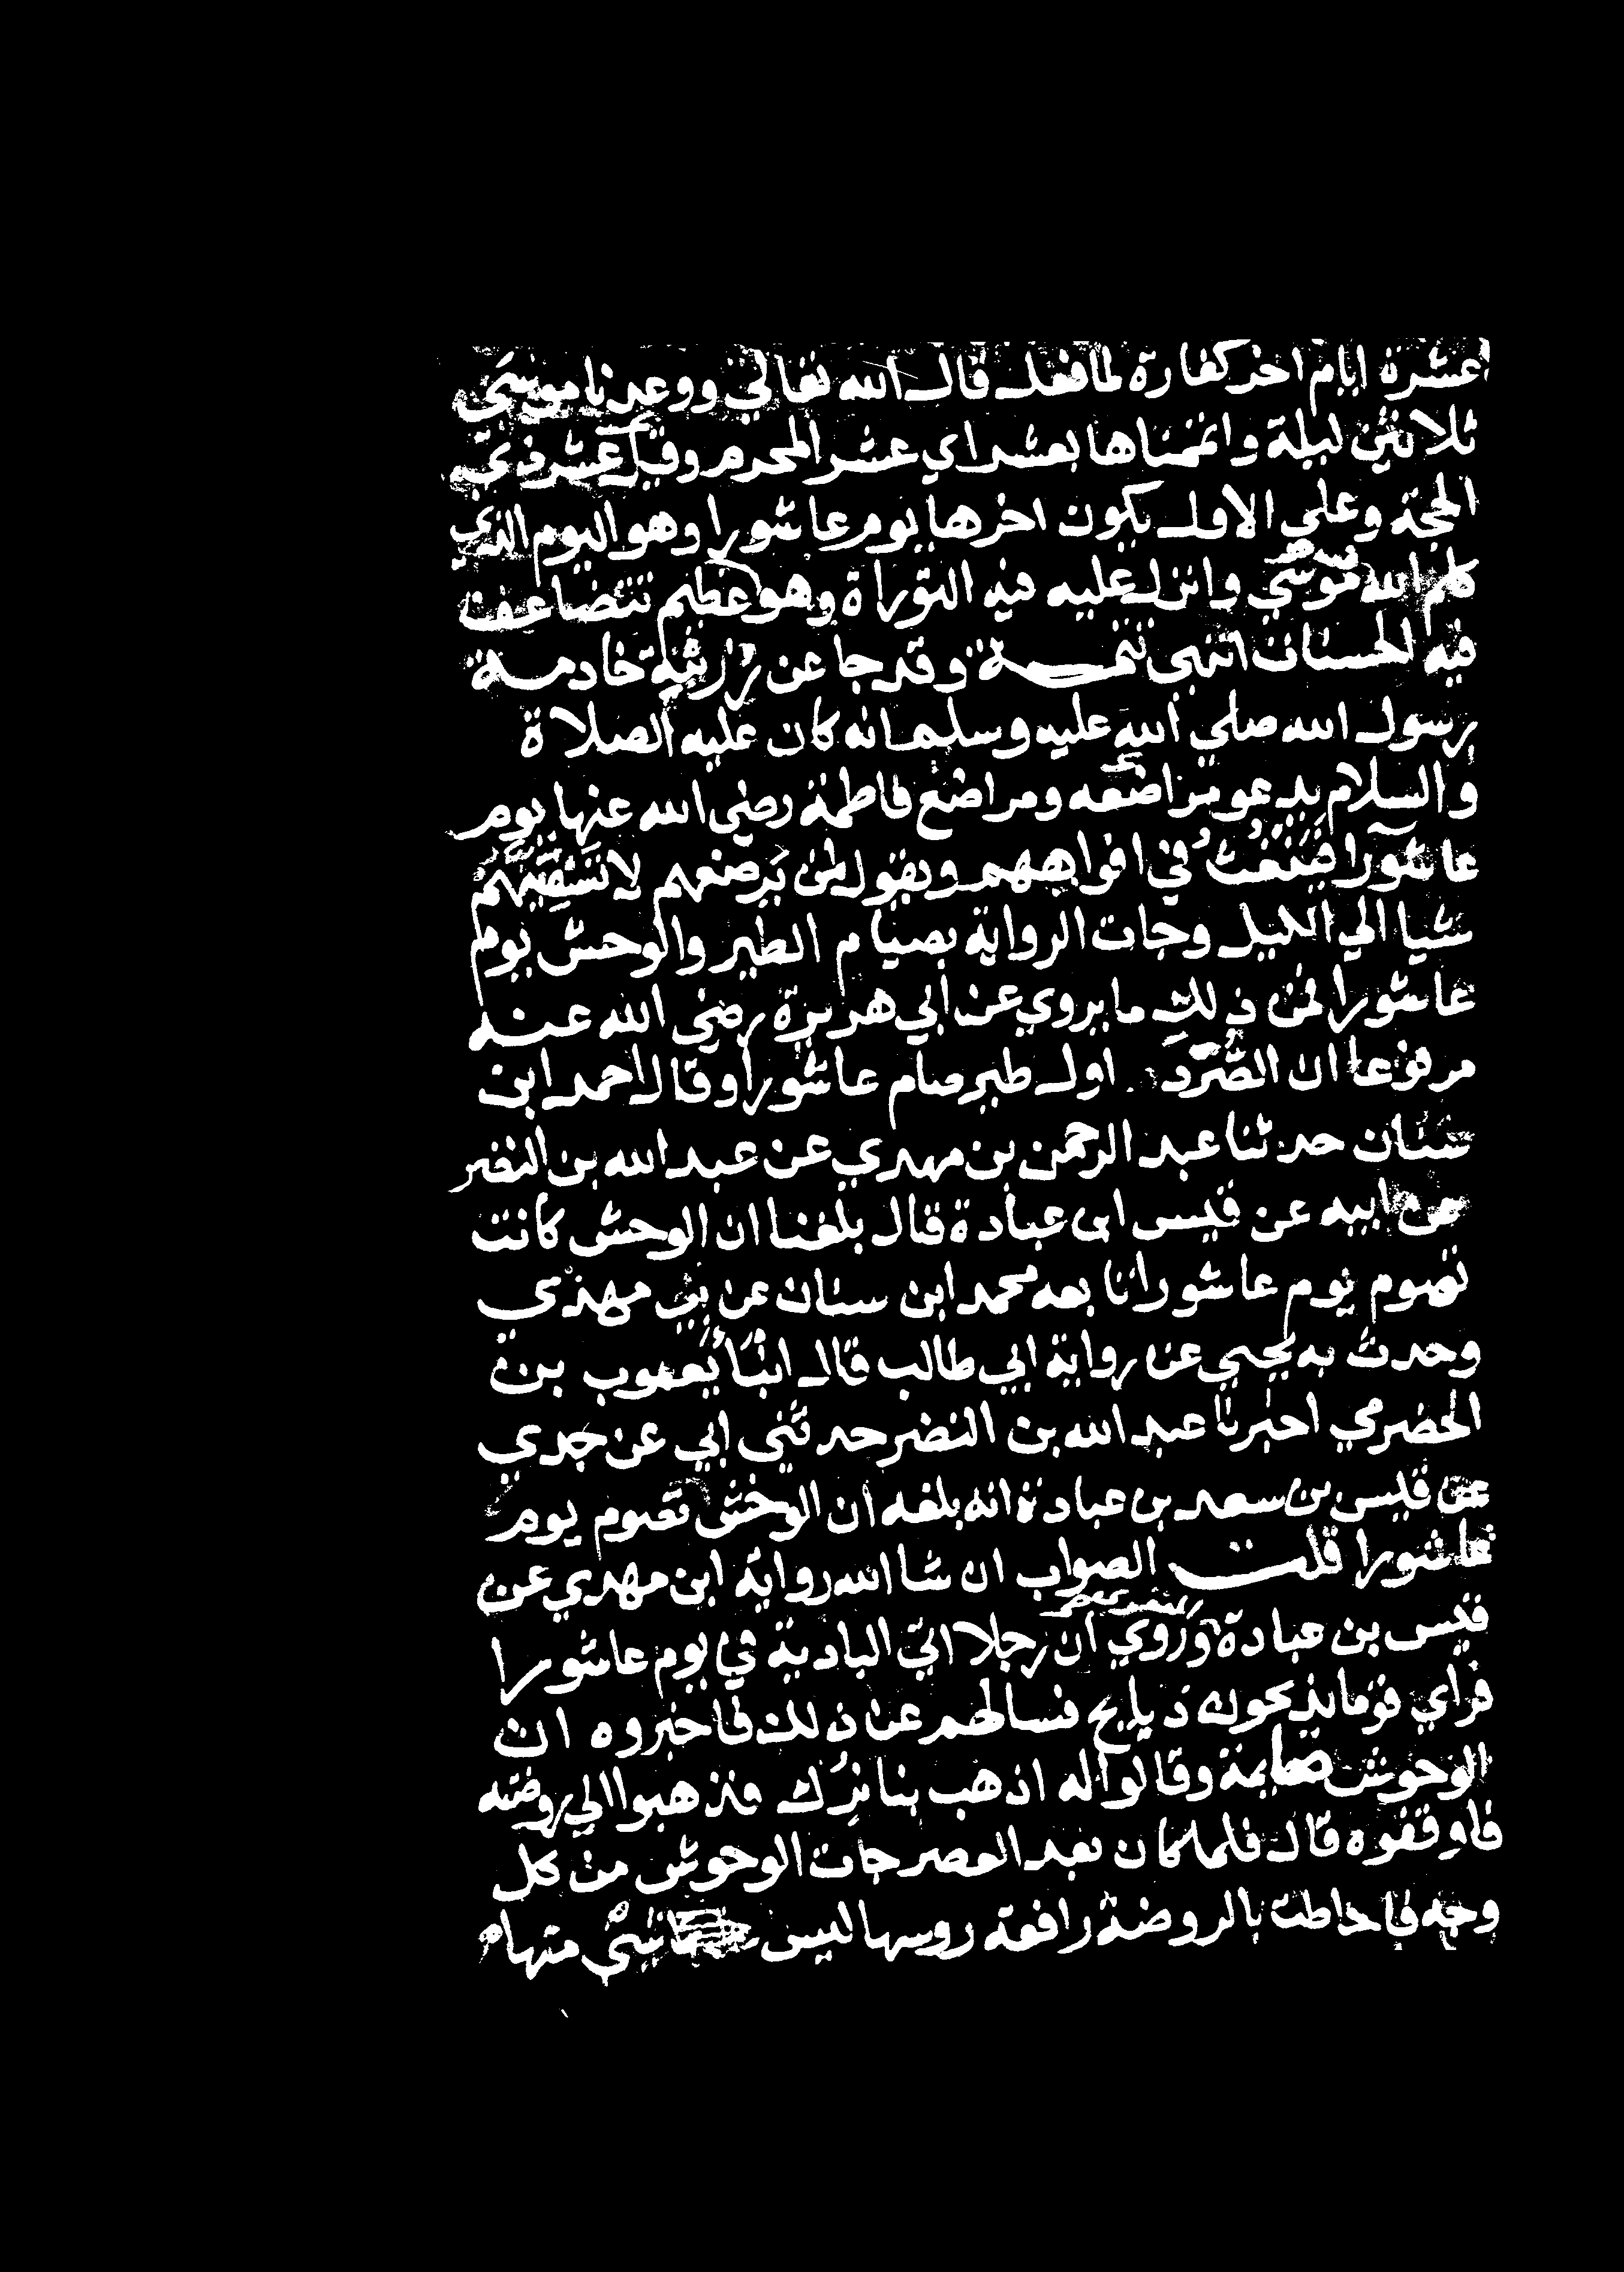 عشرة ايام اخر كفارة لما فعل قال الله تعالي ووعدنا موسي
ثلاثين ليلة واتممناها بعشر اي عشر المحرم وقيل عشر ذي
الحجة وعلي الاول يكون اخرها يوم عاشورا وهو اليوم الذي
كلم الله موسي وانزل عليه فيه التوراة وهو عظيم تتضاعف
فيه الحسنات انتهي تتمة وقد جا عن رزينة خادمة
رسول الله صلي الله عليه وسلم انه كان عليه الصلاة
والسلام يدعو مراضعه ومراضع فاطمة رضي الله عنها يوم
عاشورا فَيَنْفُثُ في افواههم ويقول لمن يرضعهم لا تسقيهم
شيا الي الليل وجات الرواية بصيام الطير والوحش يوم
عاشورا فمن ذلك ما يروي عن ابي هريرة رضي الله عنه
مرفوعا ان الصُّرَد اول طير صام عاشورا وقال احمد ابن
سنان حدثنا عبد الرحمن بن مهدي عن عبد الله بن النضر
عن ابيه عن قيس ابن عبادة قال بلغنا ان الوحش كانت
تصوم يوم عاشورا تابعه محمد ابن سنان عن بن مهدي
وحدث به يحيي عن رواية ابي طالب قال انبا يعقوب بن
الحضرمي اخبرنا عبد الله بن النضر حدثني ابي عن جدي
عن قيس بن سعد بن عبادة انه بلغه ان الوحش تصوم يوم
عاشورا قلت الصواب ان شا الله رواية ابن مهدي عن
قيس بن عبادة وروي ان رجلا اتي البادية في يوم عاشورا
فراي قوما يذبحون ذبايح فسالهم عن ذلك فاخبروه ان
الوحوش صايمة وقالوا له اذهب بنا نرك فذهبوا الي روضة
فاوقفوه قال فلما كان بعد العصر جات الوحوش من كل
وجه فاحاطت بالروضة رافعة روسها ليس شي منها